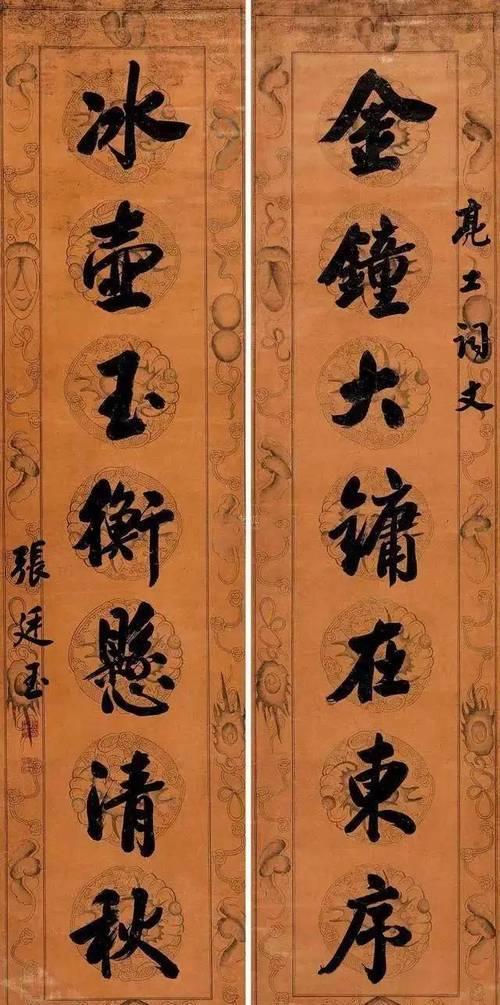 亮士詞丈
金鐘大鏞在東序
冰壺玉衡懸清秋
張廷玉